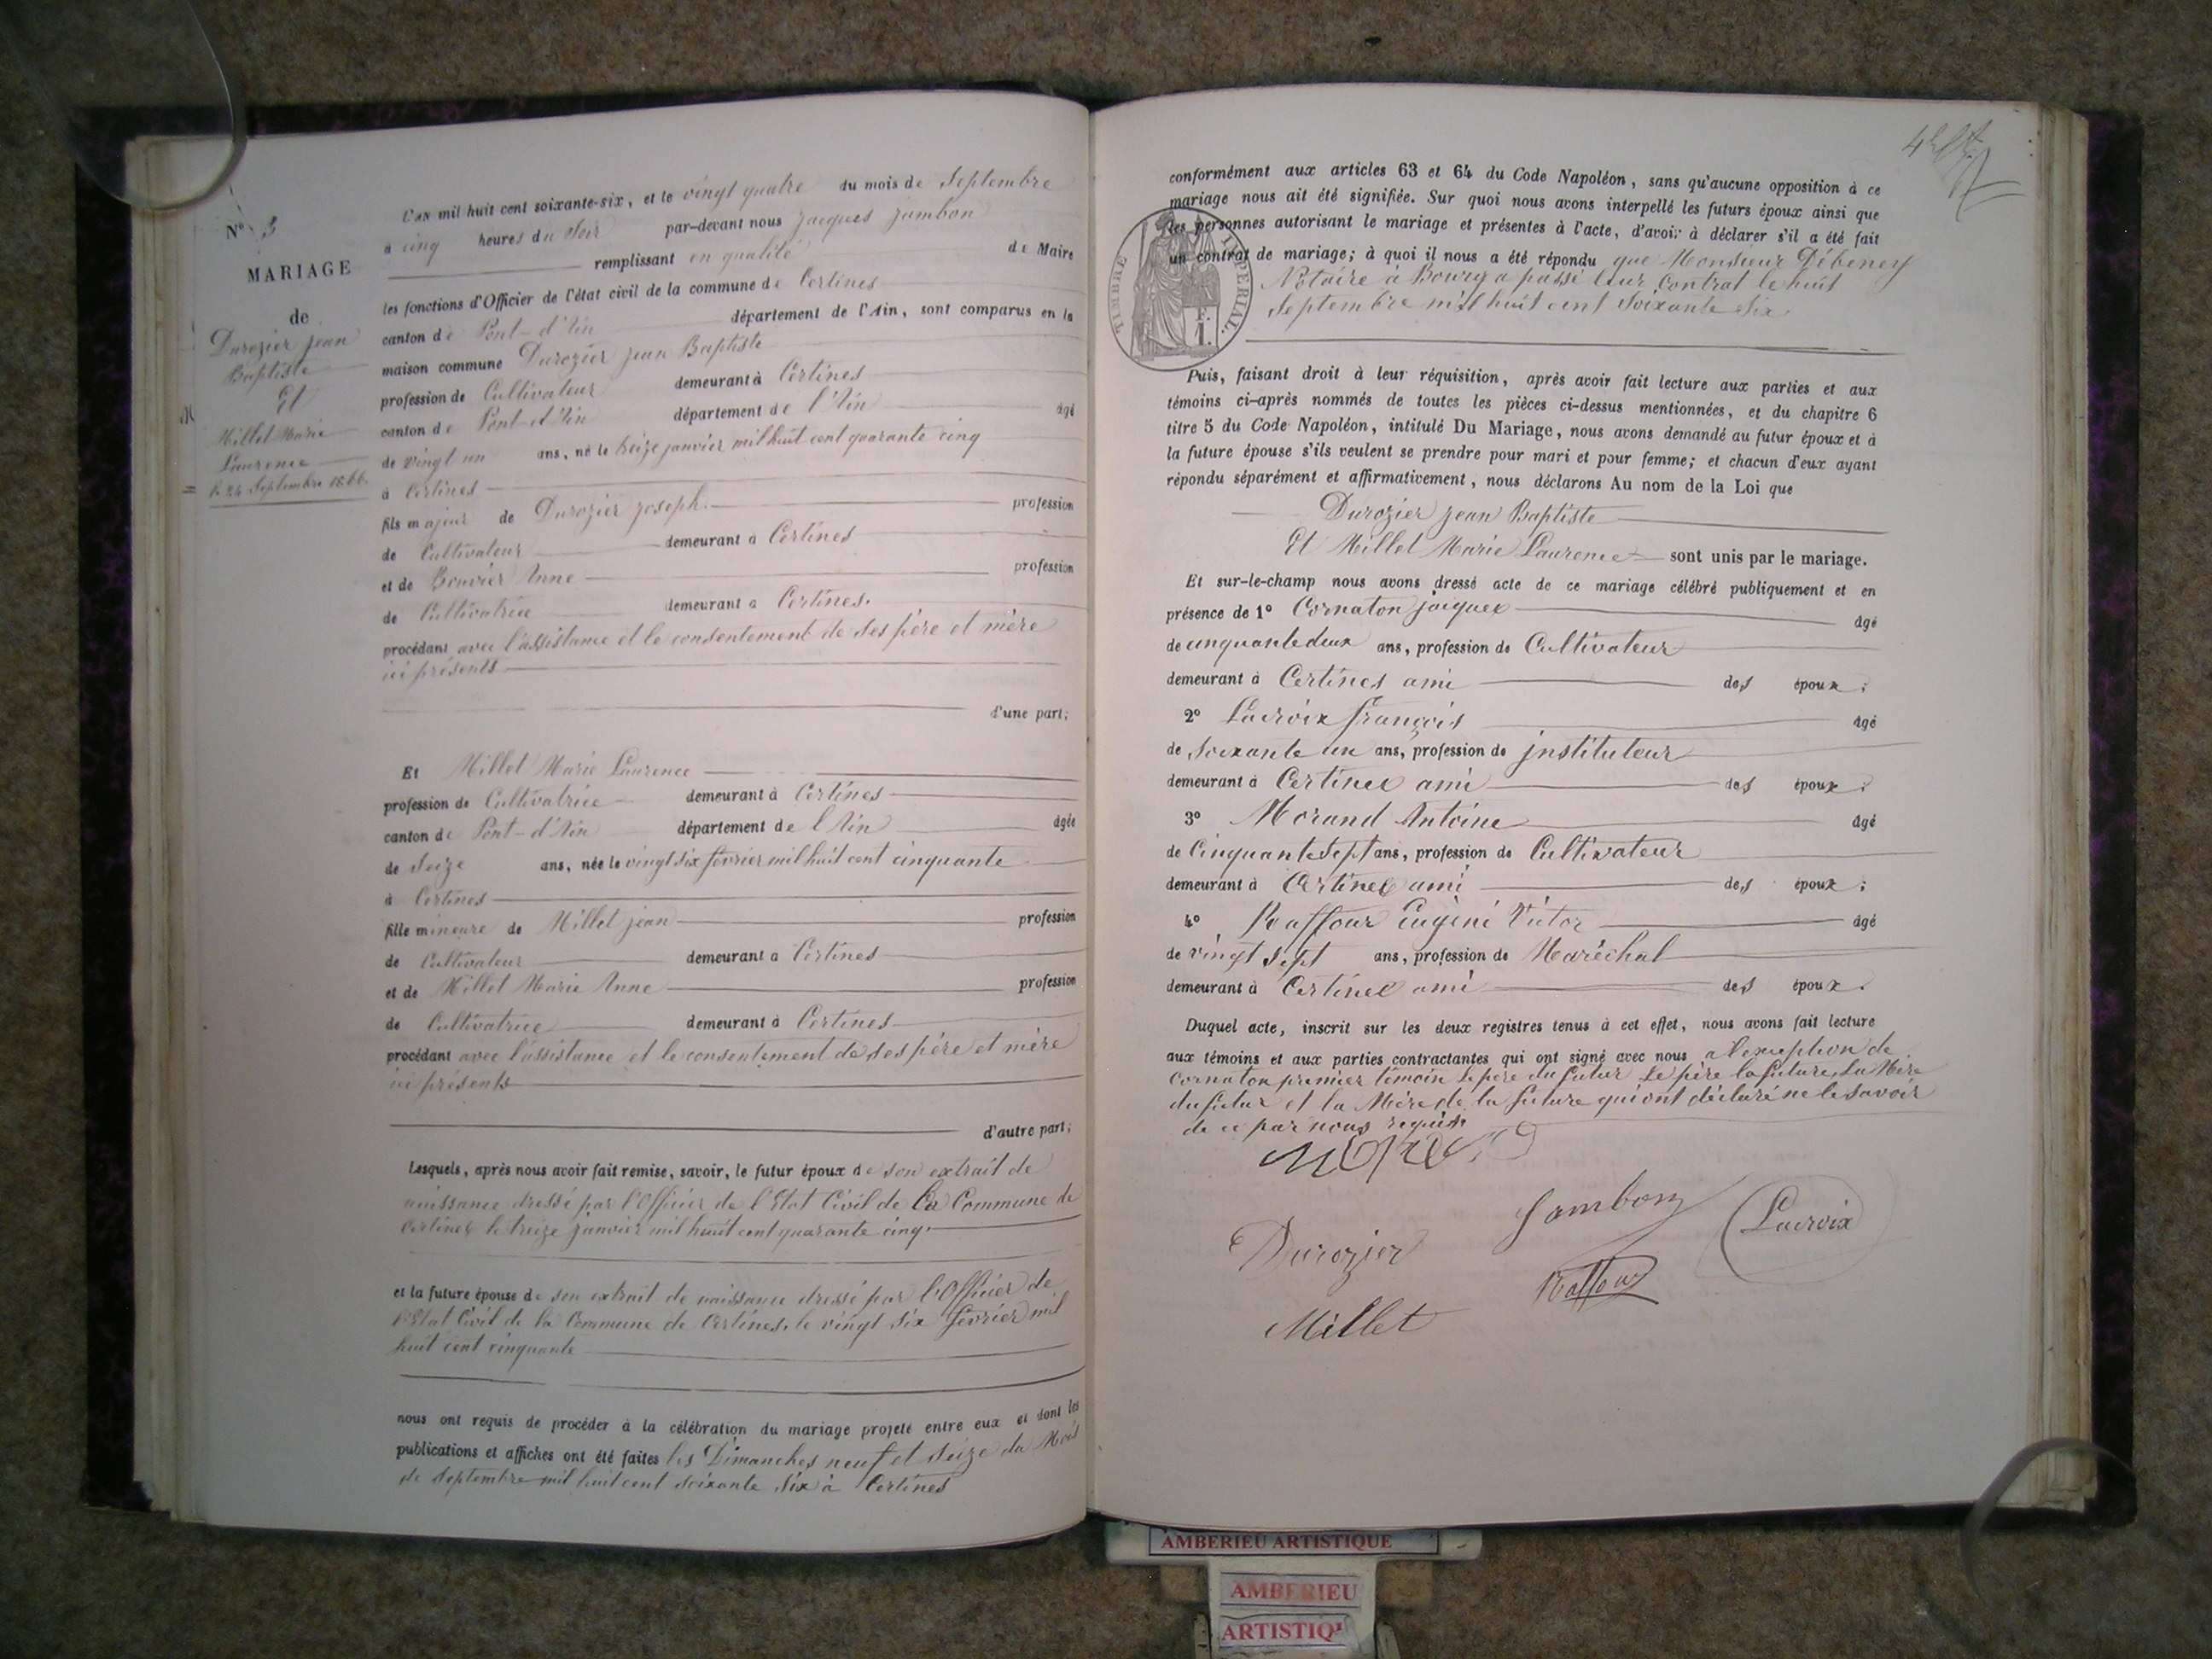 N° 3
MARIAGE
de
Durozier jean
Baptiste
Et
Millet Marie
Laurence
le 24 Septembre 1866
L'an mil huit cent soixante-six, et le vingt quatre du mois de Septembre
à cinq heures du Soir par-devant nous jacques jambon
remplissant en qualité de Maire
les fonctions d'Officier de l'état civil de la commune de Certines
canton de Pont-d'Ain département de l'Ain, sont comparus en la
maison commune Durozier jean Baptiste
profession de Cultivateur demeurant à Certines
canton de Pont-d'Ain département de l'Ain âgé
de vingt un ans, né le treize janvier mil huit cent quarante cinq
à Certines
fils majeur de Durozier joseph. profession
de Cultivateur demeurant à Certines
et de Bouvier Anne profession
de Cultivatrice demeurant à Certines.
procédant avec l'assistance et le consentement de ses père et mère
ici présents
d'une part;
Et Millet Marie Laurence
profession de Cultivatrice demeurant à Certines
canton de Pont-d'Ain département de l'Ain âgée
de Seize ans, née le vingt six février mil huit cent cinquante
à Certines
fille mineure de Millet jean profession
de Cultivateur demeurant à Certines
et de Millet Marie Anne profession
de Cultivatrice demeurant à Certines
procédant avec l'assistance et le consentement de ses père et mère
ici présents
d'autre part;
Lesquels, après nous avoir fait remise, savoir, le futur époux de son extrait de
naissance dressé par l'Officier de l'Etat Civil de la Commune de
Certines le treize janvier mil huit cent quarante cinq.
et la future épouse de son extrait de naissance dressé par l'Officier de
l'Etat Civil de la Commune de Certines, le vingt six février mil
huit cent cinquante
nous ont requis de procéder à la célébration du mariage projeté entre eux et dont les
publications et affiches ont été faites les Dimanches neuf et seize du Mois
de septembre mil huit cent soixante six à Certines
conformément aux articles 63 et 64 du Code Napoléon, sans qu'aucune opposition à ce
mariage nous ait été signifiée. Sur quoi nous avons interpellé les futurs époux ainsi que
les personnes autorisant le mariage et présentes à l'acte, d'avoir à déclarer s'il a été fait
un contrat de mariage; à quoi il nous a été répondu que Monsieur Débeney
Notaire à Bourg a passé leur contrat le huit
Septembre mil huit cent Soixante Six.
TIMBRE IMPÉRIAL.
F.
1.
Puis, faisant droit à leur réquisition, après avoir fait lecture aux parties et aux
témoins ci-après nommés de toutes les pièces ci-dessus mentionnées, et du chapitre 6
titre 5 du Code Napoléon, intitulé Du Mariage, nous avons demandé au futur époux et à
la future épouse s'ils veulent se prendre pour mari et pour femme; et chacun d'eux ayant
répondu séparément et affirmativement, nous déclarons Au nom de la Loi que
Durozier jean Baptiste
Et Millet Marie Laurence sont unis par le mariage.
Et sur-le-champ nous avons dressé acte de ce mariage célébré publiquement et en
présence de 1° Cornaton jacques âgé
de cinquante deux ans, profession de Cultivateur
demeurant à Certines ami des époux;
2° Lacroix françois âgé
de Soixante un ans, profession de instituteur
demeurant à Certines ami des époux;
3° Morand Antoine âgé
de Cinquante Sept ans, profession de Cultivateur
demeurant à Certines ami des époux;
4° Raffour Eugéné Victor âgé
de vingt sept ans, profession de Maréchal
demeurant à Certines ami des époux.
Duquel acte, inscrit sur les deux registres tenus à cet effet, nous avons fait lecture
aux témoins et aux parties contractantes qui ont signé avec nous a l'exception de
Cornaton premier témoin le père du futur le père la future, La Mère
du futur et la Mère de la future qui ont déclaré ne le savoir
de ce par nous requis
Durozier
Jambon
Lacroix
Raffour
Millet
AMBERIEU ARTISTIQUE
AMBERIEU
ARTISTIQ